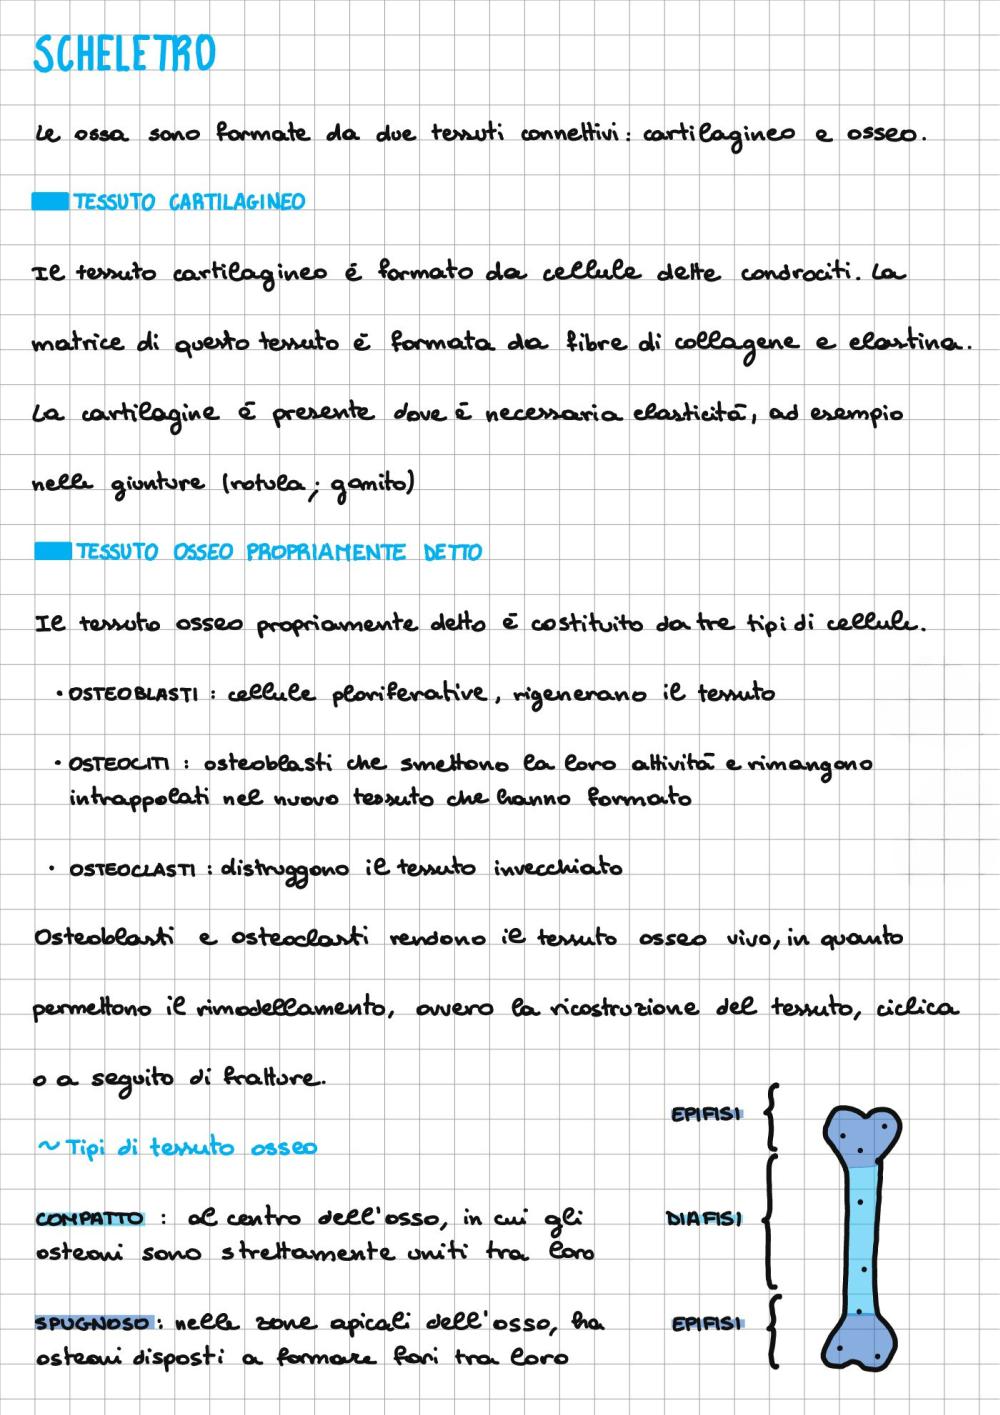 SCHELETRO
Le ossa sono formate da due tessuti connettivi: cartilagineo e osseo.
TESSUTO CARTILAGINEO
Il tessuto cartilagineo é formato da cellule dette condrociti. La
matrice di questo tessuto é formata da fibre di collagene e elastina.
La cartilagine é presente dove é necessaria elasticitá, ad esempio
nelle giunture (rotula; gomito)
TESSUTO OSSEO PROPRIAMENTE DETTO
Il tessuto osseo propriamente detto é costituito da tre tipi di cellule.
• OSTEOBLASTI : cellule ploriferative, rigenerano il tessuto
• OSTEOCITI : osteoblasti che smettono la loro attivitá e rimangono
intrappolati nel nuovo tessuto che hanno formato
• OSTEOCLASTI : distruggono il tessuto invecchiato
Osteoblasti e osteoclasti rendono il tessuto osseo vivo, in quanto
permettono il rimodellamento, ovvero la ricostruzione del tessuto, ciclica
o a seguito di fratture.
EPIFISI
~ Tipi di tessuto osseo
COMPATTO : al centro dell'osso, in cui gli
osteoni sono strettamente uniti tra loro
DIAFISI
SPUGNOSO : nelle zone apicali dell'osso, ha
osteoni disposti a formare fori tra loro
EPIFISI